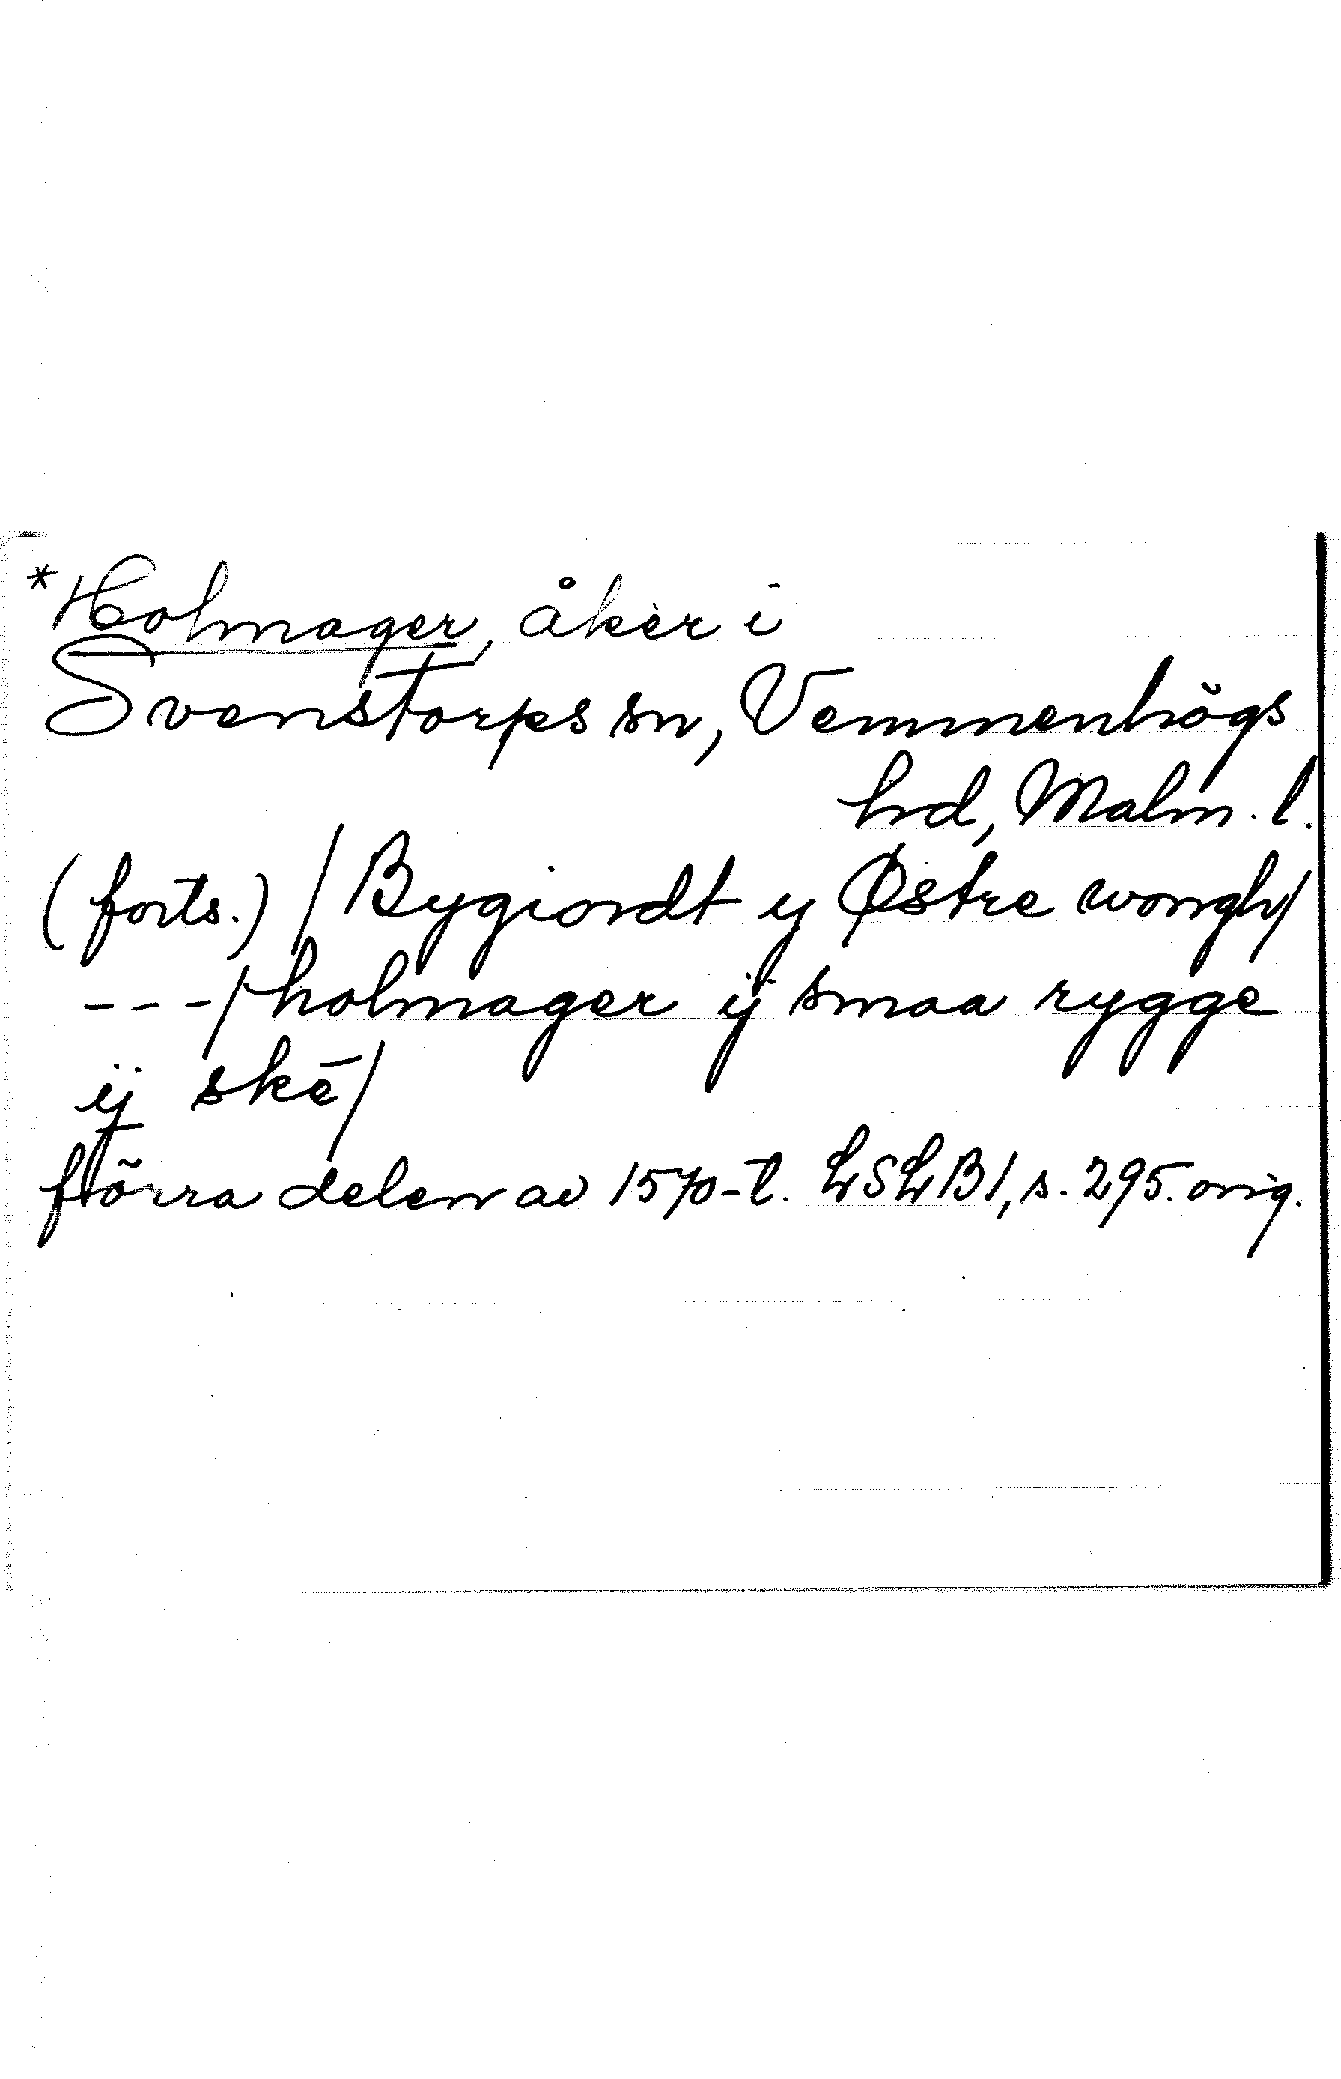 *Holmager, åker i
Svenstorps sn, Vemmenhögs
hd, Malm. l.
(forts.) / Bygiordt y Østre wongh/
---/ holmager ij smaa rygge
ij skē/
förra delen av 1570-t. LSLB 1, s. 295. orig.